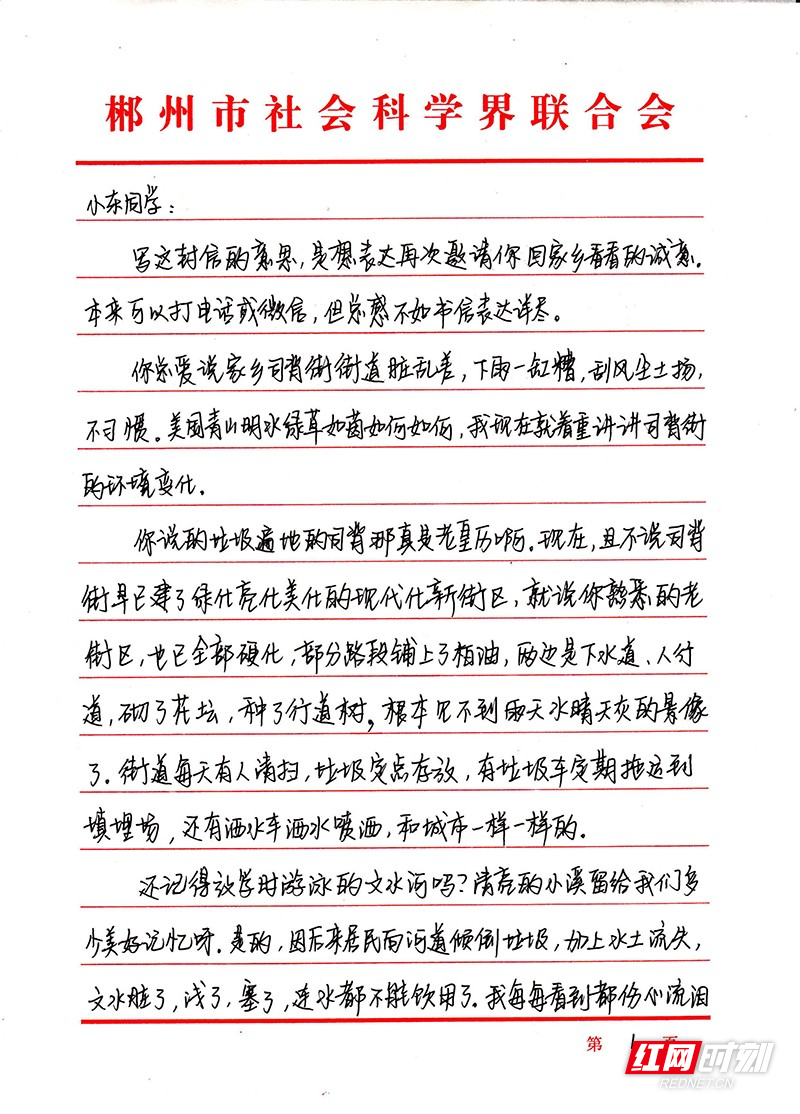 郴州市社会科学界联合会
小东同学：
写这封信的意思，是想表达再次邀请你回家乡看看的诚意。
本来可以打电话或微信，但总感不如书信表达详尽。
你总爱说家乡司背街街道脏乱差，下雨一缸糟，刮风尘土扬，
不习惯。美国青山明水绿草如茵如何如何，我现在就着重讲讲司背街
的环境变化。
你说的垃圾遍地的司背那真是老皇历啊。现在，且不说司背
街早已建了绿化亮化美化的现代化新街区，就说你熟悉的老
街区，也已全部硬化，部分路段铺上了柏油，两边是下水道、人行
道，砌了花坛，种了行道树，根本见不到雨天水晴天灰的景像
了。街道每天有人清扫，垃圾定点存放，有垃圾车定期拖运到
填埋场，还有洒水车洒水喷洒，和城市一样一样的。
还记得放学时游泳的文水河吗？清亮的小溪留给我们多
少美好记忆呀。是的，因后来居民向河道倾倒垃圾，加上水土流失，
文水脏了，浅了，塞了，连水都不能饮用了。我每每看到都伤心流泪
第 1 页
红网时刻
REDNET.CN